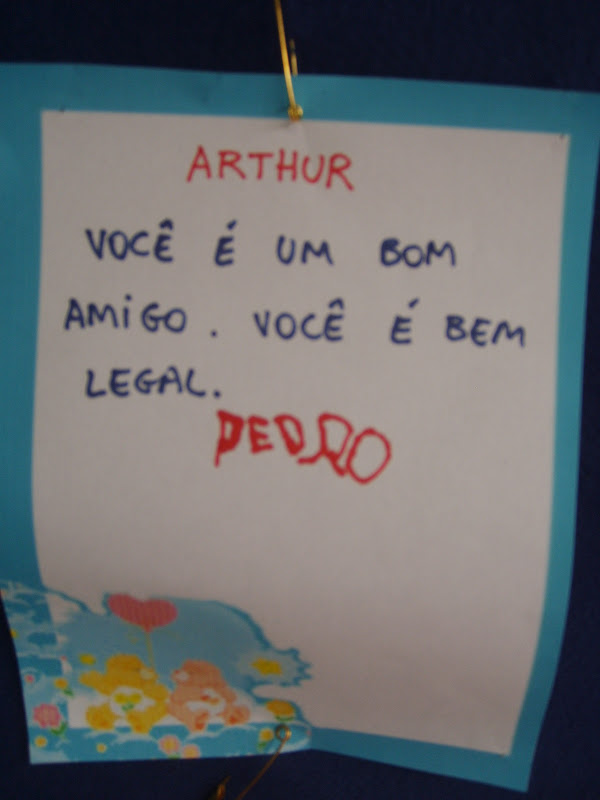 ARTHUR
VOCÊ É UM BOM
AMIGO. VOCÊ É BEM
LEGAL.
PEDRO